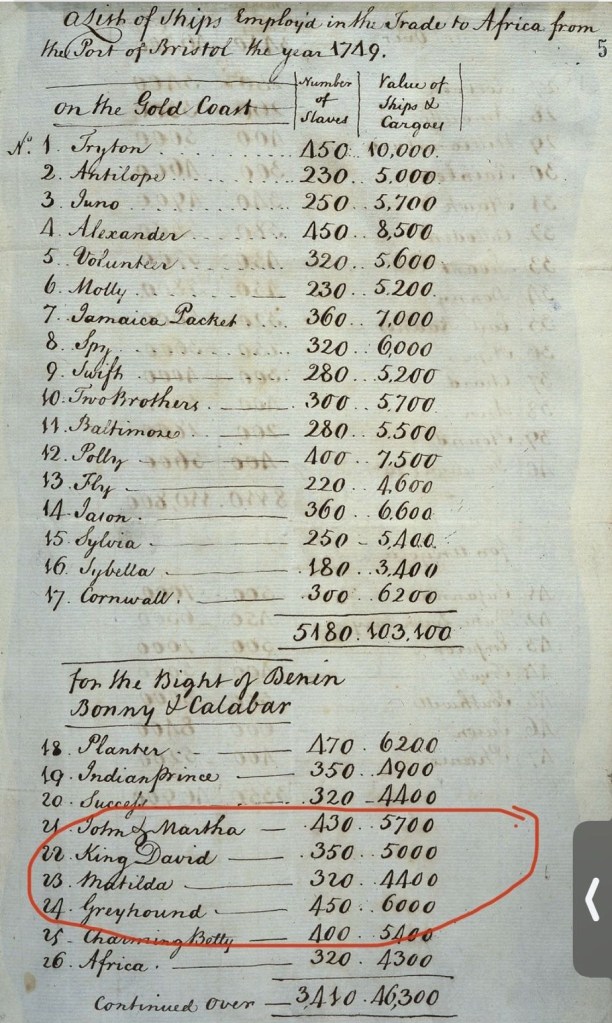 a List of Ships Employ'd in the Trade to Africa from
the Port of Bristol the year 1749.
5
on the Gold Coast Number of Slaves Value of Ships & Cargoes
No. 1. Tryton 450 10,000
2. Antilope 230 5,000
3. Juno 250 5,700
4. Alexander 450 8,500
5. Volunteer 320 5,600
6. Molly 230 5,200
7. Jamaica Packet 360 7,000
8. Spy 320 6,000
9. Swift 280 5,200
10. Two Brothers 300 5,700
11. Baltimore 280 5,500
12. Polly 400 7,500
13. Fly 220 4,600
14. Jason 360 6,600
15. Sylvia 250 5,400
16. Sybella 180 3,400
17. Cornwall 300 6200
5180 103,100
for the Bight of Benin
Bonny & Calabar
18. Planter 470 6200
19. Indian prince 350 4900
20. Success 320 4400
21. John & Martha 430 5700
22. King David 350 5000
23. Matilda 320 4400
24. Greyhound 450 6000
25. Charming Betty 400 5400
26. Africa 320 4300
Continued over 3,410 46,300